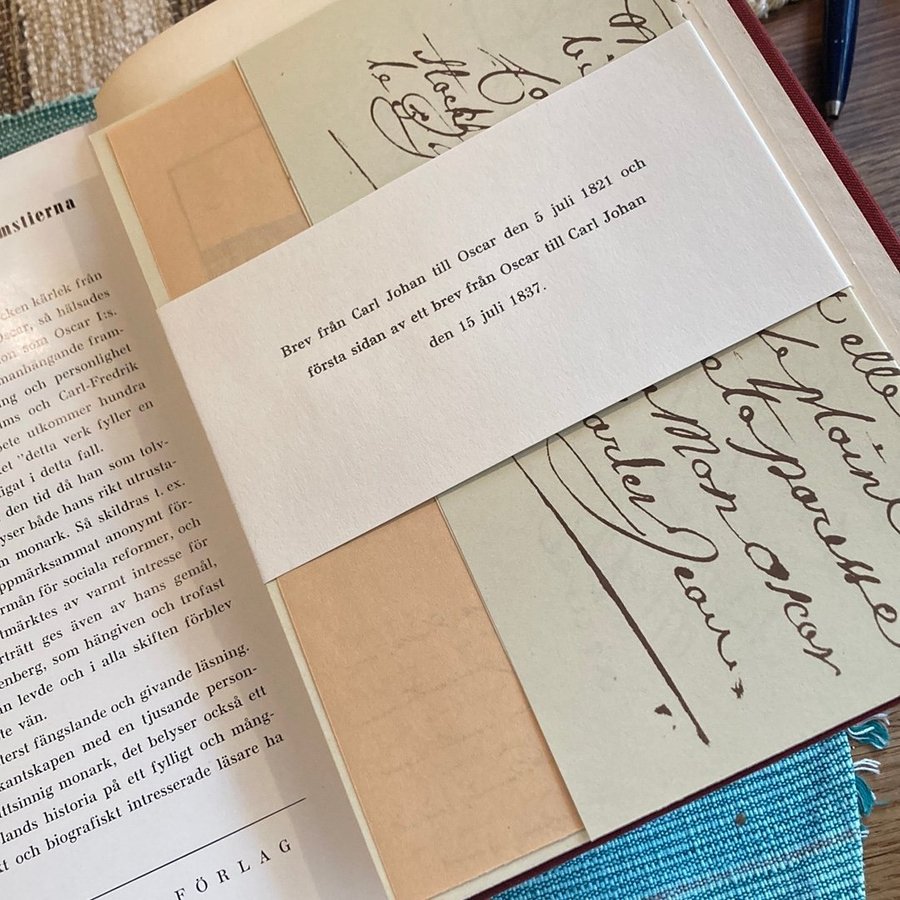 mstierna
cken kärlek från
Oscar, så hälsades
son som Oscar I:s.
manhängande fram-
ng och personlighet
ms och Carl-Fredrik
bete utkommer hundra
et "detta verk fyller en
tigat i detta fall.
den tid då han som tolv-
lyser både hans rikt utrusta-
m monark. Så skildras t. ex.
ppmärksammat anonymt för-
rmån för sociala reformer, och
tmärktes av varmt intresse för
rträtt ges även av hans gemål,
enberg, som hängiven och trofast
n levde och i alla skiften förblev
te vän.
terst fängslande och givande läsning.
kantskapen med en tjusande person-
ttsinnig monark, det belyser också ett
lands historia på ett fylligt och mång-
kt och biografiskt intresserade läsare ha
FÖRLAG
Brev från Carl Johan till Oscar den 5 juli 1821 och
första sidan av ett brev från Oscar till Carl Johan
den 15 juli 1837.
elle
Mon Oscar
Charles Jean